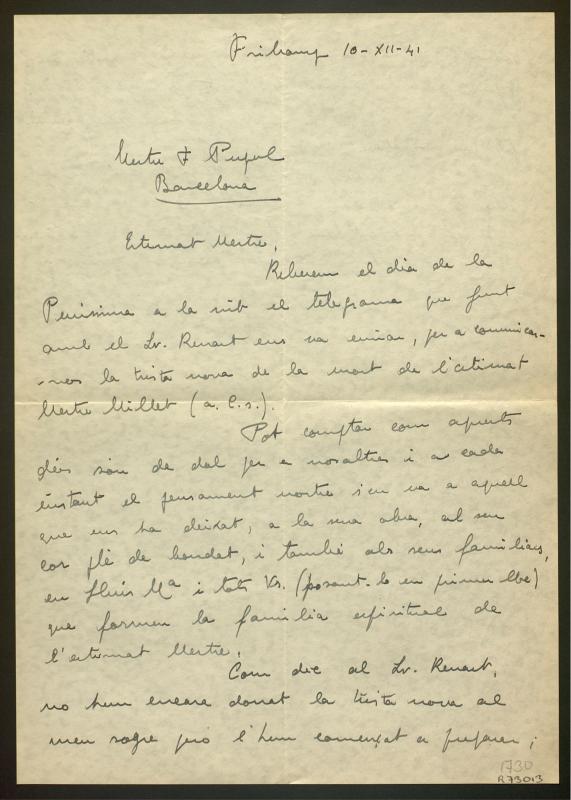 Fribourg 10-XII-41
Mestre F. Pujol
Barcelona
Estimat Mestre,
Reberem el dia de la
Puríssima a la nit el telegrama que junt
amb el Sr. Renart ens va enviar, per a comunicar-
-nos la trista nova de la mort de l'estimat
Mestre Millet (a. C. s.).
Pot comptar com aquests
dies són de dol per a nosaltres i a cada
instant el pensament nostre s'en va a aquell
que ens ha deixat, a la seva obra, al seu
cor ple de bondat, i també als seus familiars,
en Lluis Mª i tots Vs. (posant-lo en primer lloc)
que formen la familia espiritual de
l'estimat Mestre.
Com dic al Sr. Renart,
no hem encare donat la trista nova al
meu sogre però l'hem començat a preparar;
1730
R.73013